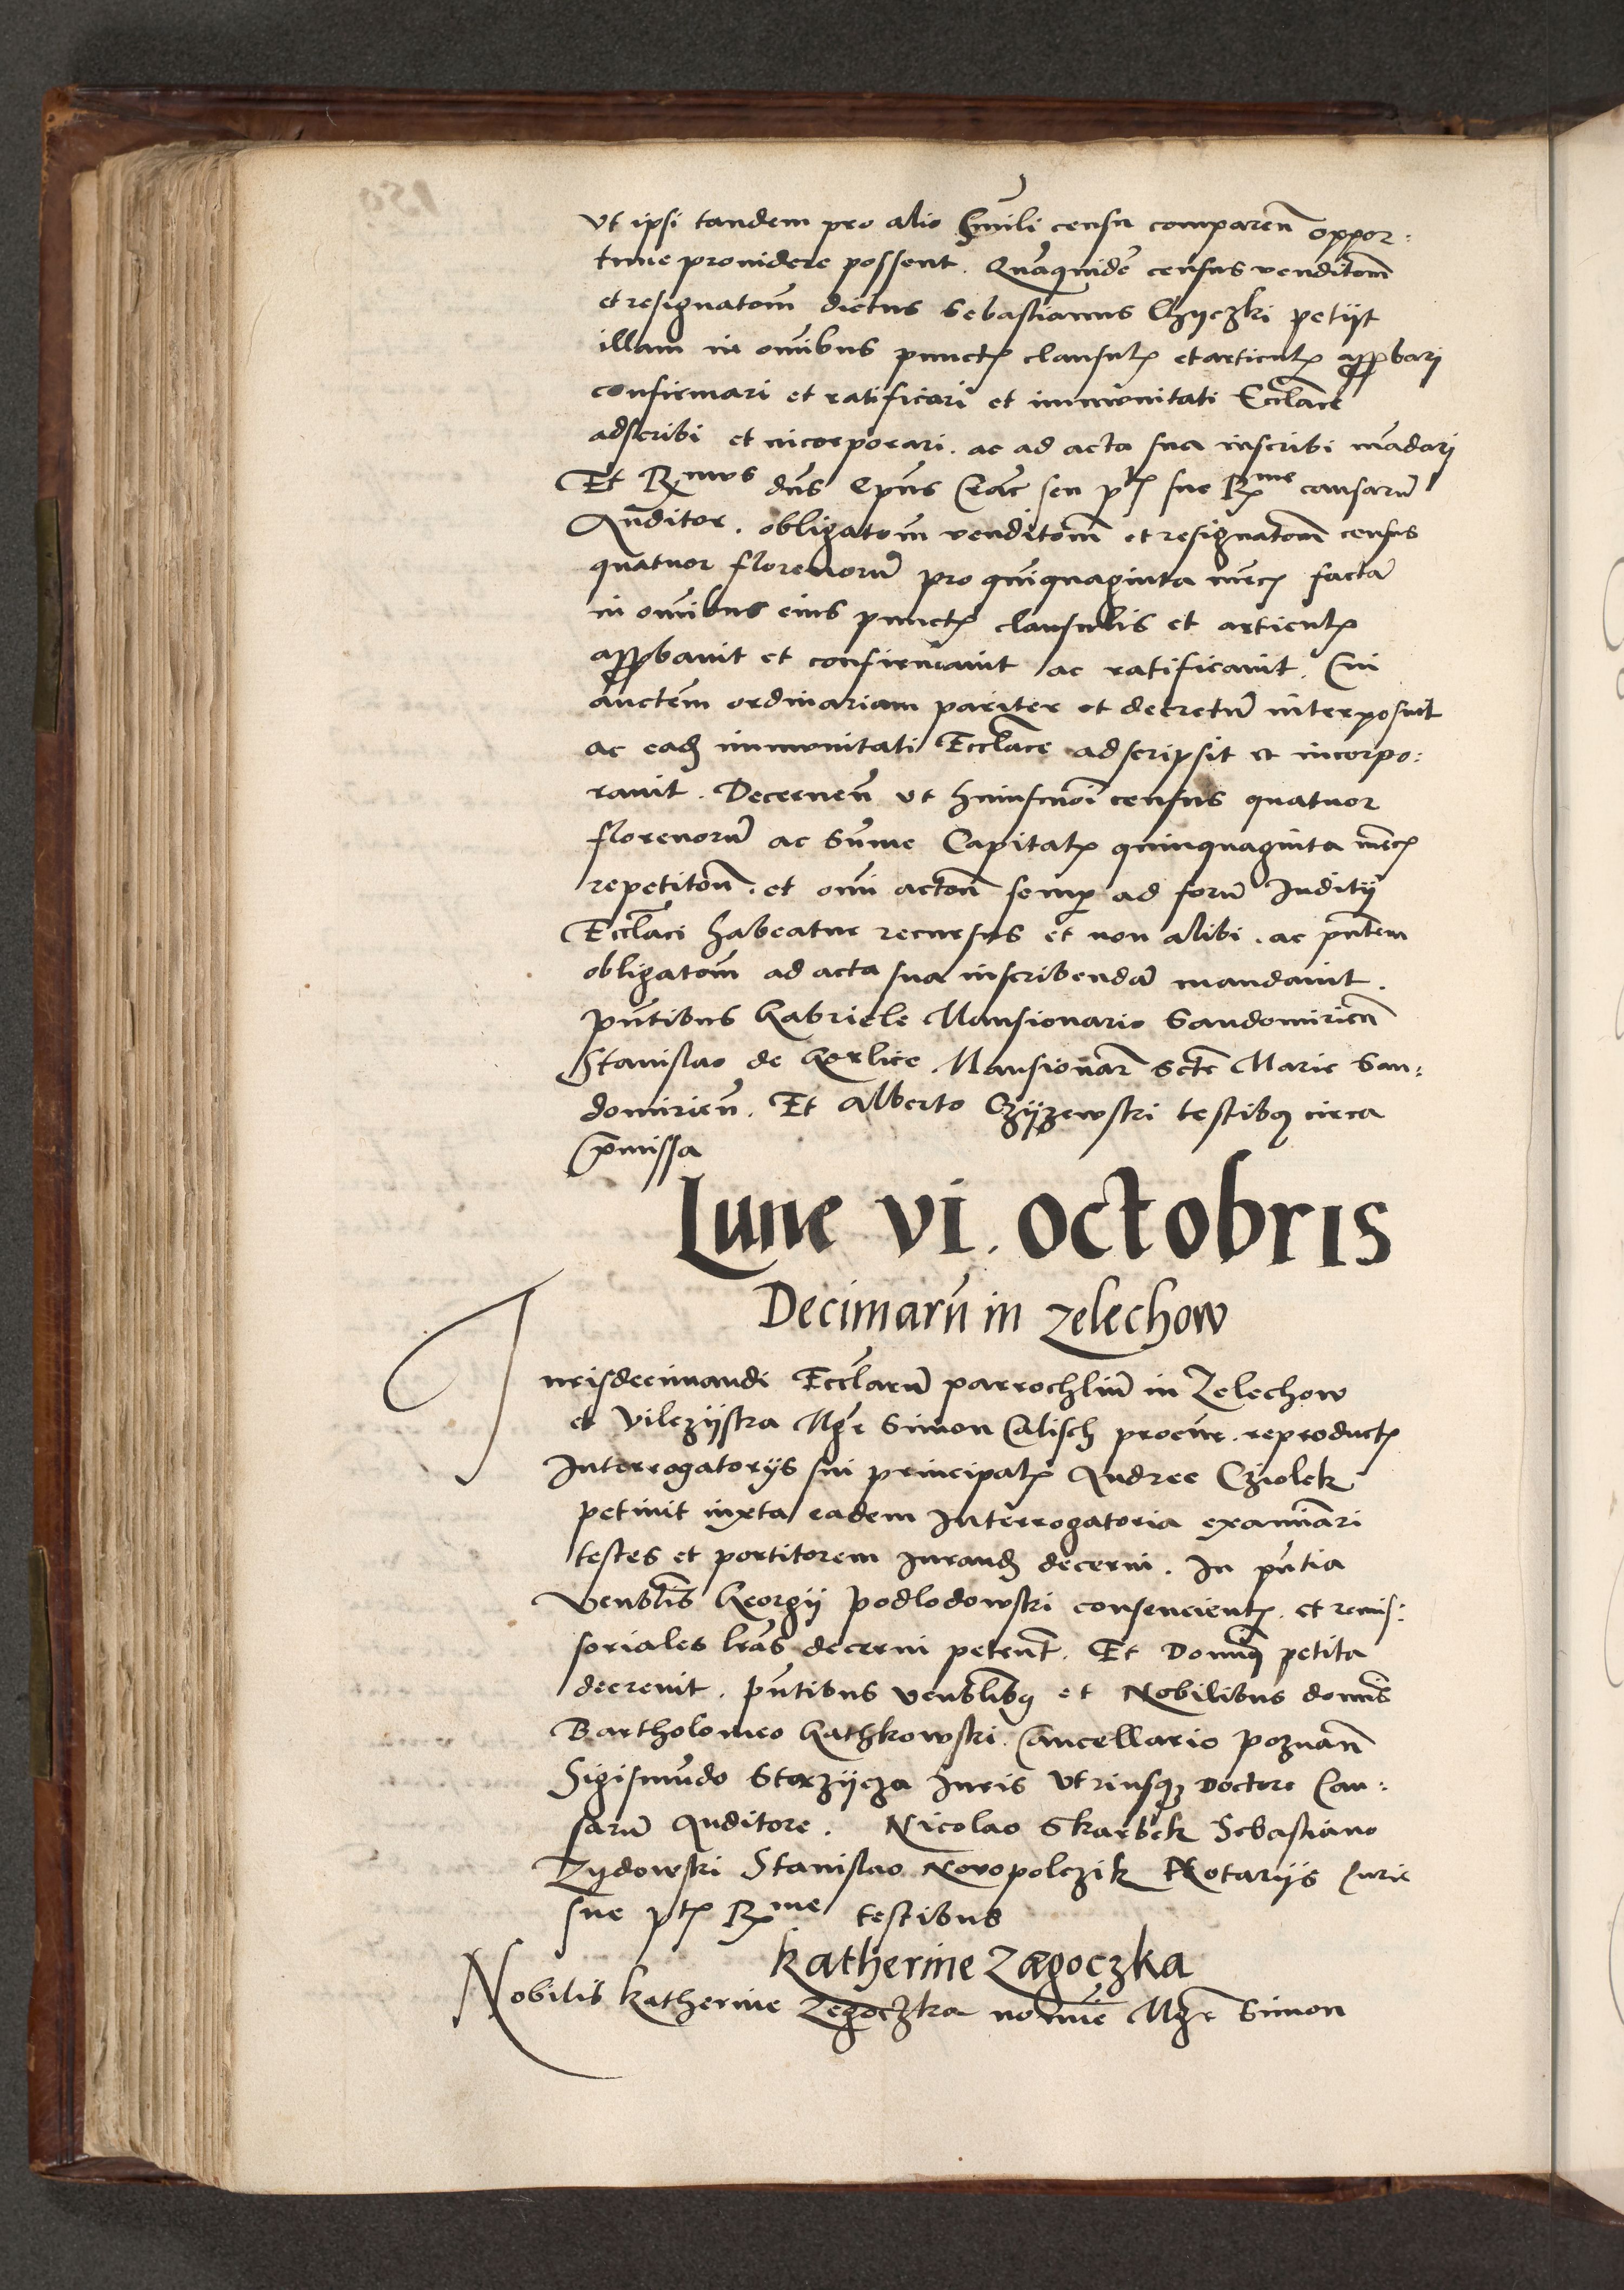 Ut ipsi tandem pro alio simili censu comparen̄ oppor:
tune providere possent. Quāquidē census venditom̄
et resignatom̄ dictus Sebastianus Czyczki petijt
illam in om̄ibus punctꝭ clausulꝭ et articulꝭ approbari
confirmari et ratificari et immunitati Eccl̄ace
adscribi et incorporari. ac ad acta sua inscribi mādari
Et Rx̄mus dn̄s Ep̄us Crac̄ seu ptꝭ sue Rx̄me causarū
Auditor. obligatom̄ venditom̄ et resignatom̄ census
quatuor florenorū pro quinquaginta mrcꝭ factā
in om̄ibus eius punctꝭ clausulis et articulꝭ
approbavit et confirmavit ac ratificavit. Cui
auctem̄ ordinariam pariter et decretū interposuit
ac eadꝫ immunitati Eccl̄ace adscripsit et incorpo:
ravit. Decernen̄ ut huiusmōi census quatuor
florenorū ac Sum̄e Capitalꝭ quinquaginta mrcꝭ
repetitom̄. et om̄i actom̄ semp̱ ad forū Juditij
Eccl̄aci habeatur recursus et non alibi. ac pn̄tem
obligatom̄ ad acta sua inscribendā mandavit.
pn̄tibus Gabriele Mansionario Sandomirien̄
Stanislao de Gorlice Mansionar̄ Sctē Marie San:
domirien̄. Et Alberto Czyżewski testibꝫ circa
p̄missa
Lune vi. octobris
Decimarū in Zelechow
Jurisdecimandi Eccl̄arū parrochliū in Zelechow
et Vilczijska Mgr̄ Simon Calisch procur̄. reproductꝭ
Interrogatorijs sui principalꝭ Andree Cziolek
petivit iuxta eadem Interrogatoria examinari
testes et portitorem Jurandꝫ decerni. In pn̄tia
Venblīs Georgij Podlodowski consencientꝭ. et remis:
soriales lr̄as decerni petent̄. Et Domnꝫ petita
decrevit. pn̄tibus venblībꝫ et Nobilibus domīs
Bartholomeo Gathkowski Cancellario Poznan̄
Sigismūdo Starzijcza Juris Utriusqꝫ Doctore Cau:
sarū Auditore. Nicolao Skarbek Sebastiano
Zydowski Stanislao Novopolczik Notarijs Curie
sue ptꝭ Rx̄me testibus
Katherine Zagoczka
Nobilis Katherine Zegoczka nomīe Mgr̄ Simon